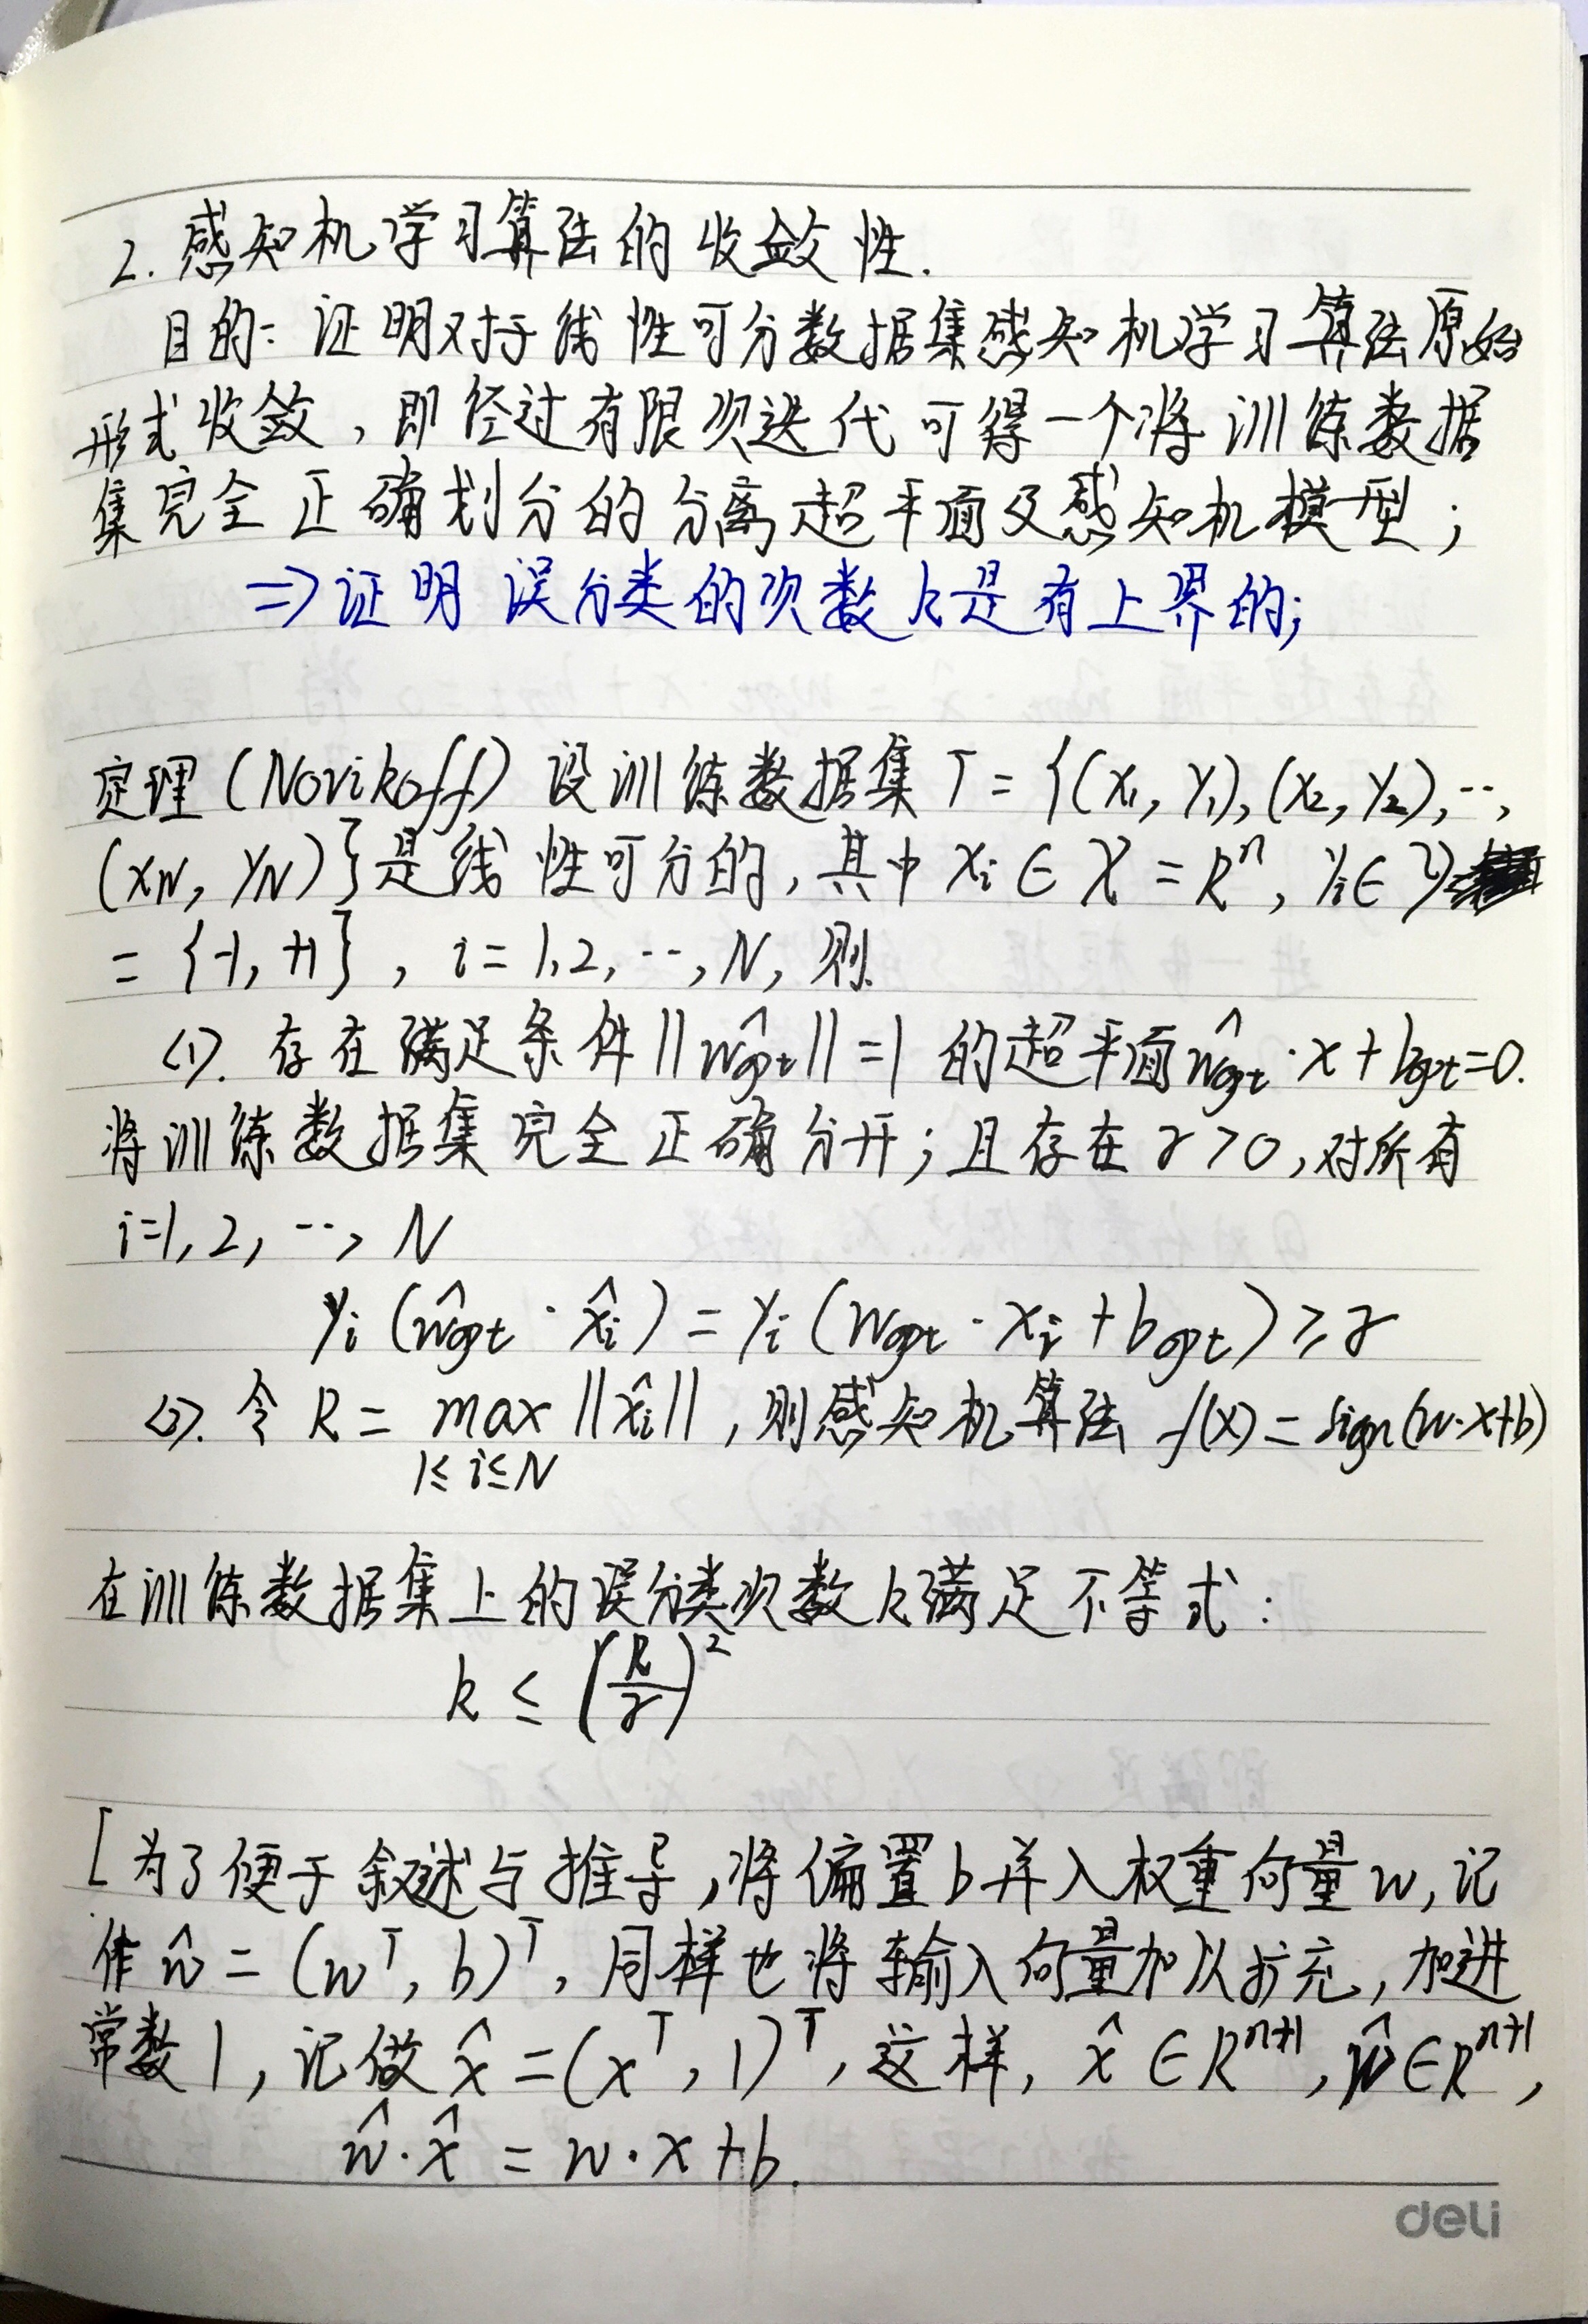 2. 感知机学习算法的收敛性.
目的: 证明对于线性可分数据集感知机学习算法原始
形式收敛, 即经过有限次迭代可得一个将训练数据
集完全正确划分的分离超平面及感知机模型;
⇒证明 误分类的次数k是有上界的;
定理 (Novikoff) 设训练数据集 T = {(x₁, y₁), (x₂, y₂), ⋯,
(x_N, y_N)} 是线性可分的, 其中 x_i ∈ 𝒳 = Rⁿ, y_i ∈ 𝒴
= {-1, +1}, i = 1, 2, ⋯, N, 则
(1). 存在满足条件 ||ŵ_opt|| = 1 的超平面 ŵ_opt · x + b_opt = 0.
将训练数据集完全正确分开; 且存在 γ > 0, 对所有
i=1, 2, ⋯, N
y_i (ŵ_opt · x̂_i) = y_i (w_opt · x_i + b_opt) ≥ γ
(2). 令 R = max ||x̂_i||, 则感知机算法 f(x) = sign(w·x+b)
1≤ i ≤N
在训练数据集上的误分类次数k满足不等式:
k ≤ (R/γ)²
[为了便于叙述与推导, 将偏置b并入权重向量w, 记
作 ŵ = (wᵀ, b)ᵀ, 同样也将输入向量加以扩充, 加进
常数1, 记做 x̂ = (xᵀ, 1)ᵀ, 这样, x̂ ∈ Rⁿ⁺¹, ŵ ∈ Rⁿ⁺¹,
ŵ · x̂ = w · x + b.
deli